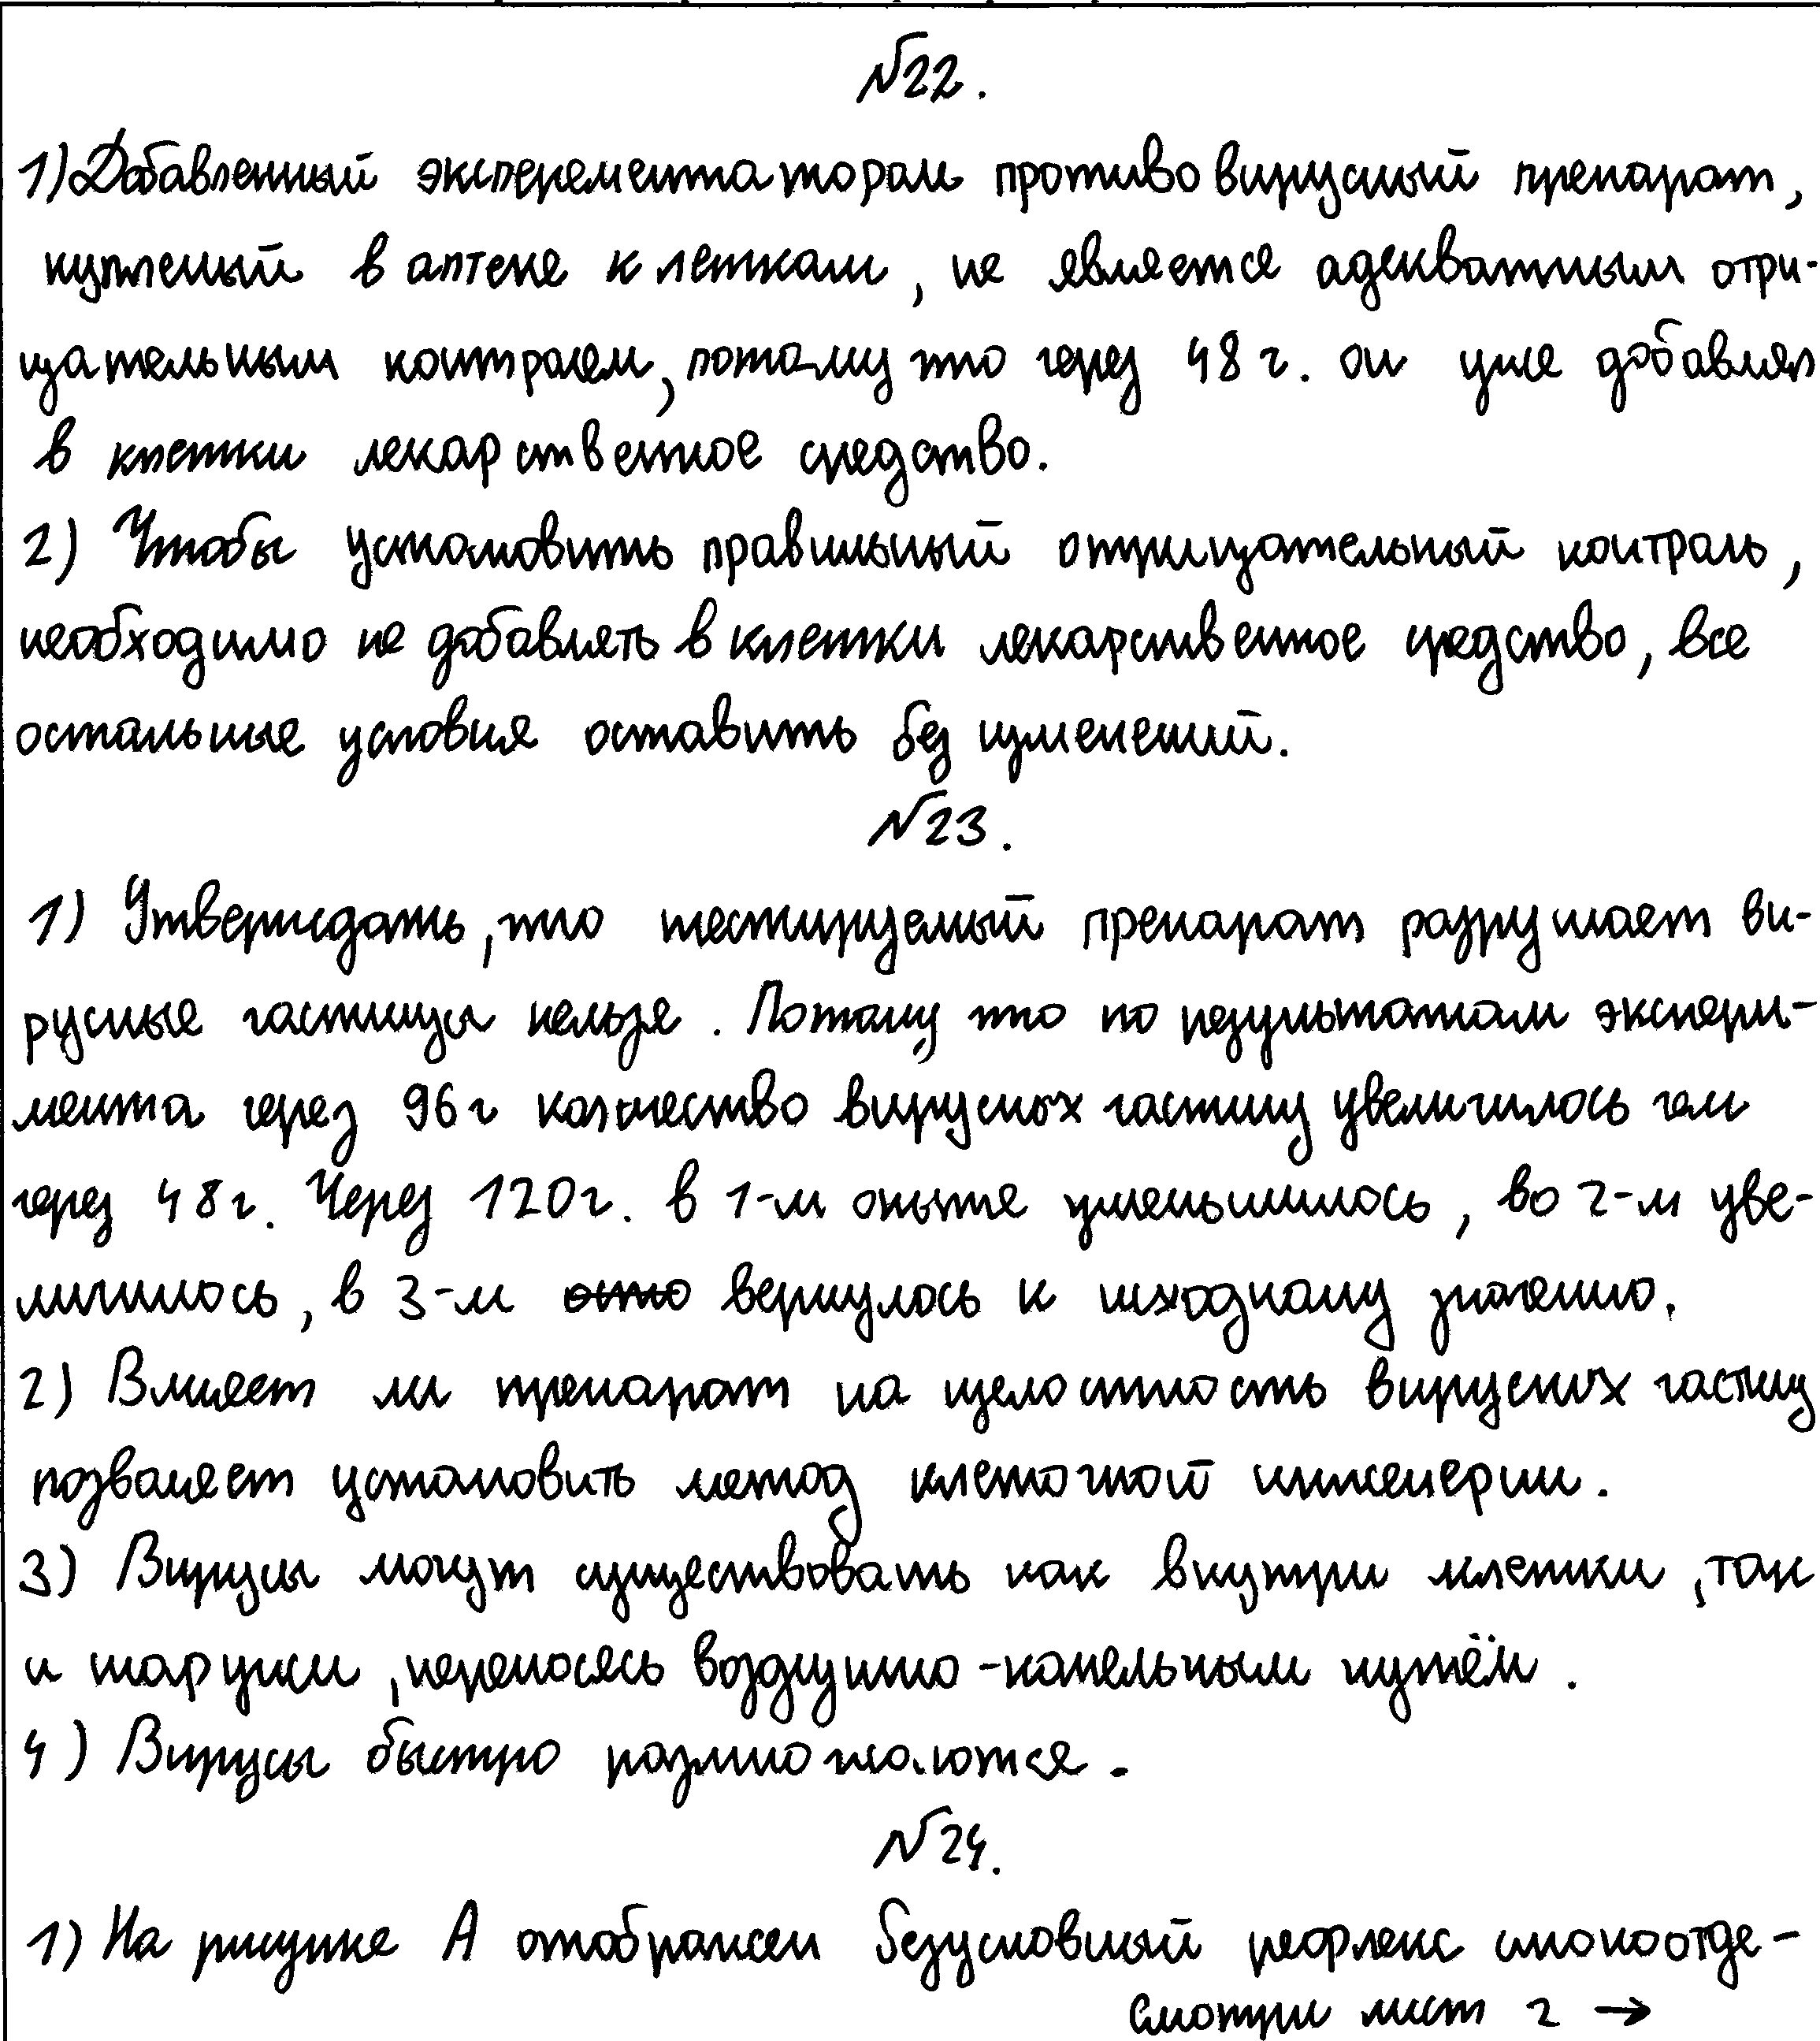 №22.
1) Добавленный эксперементатором противовирусный препарат,
купленый в аптеке клеткам, не является адекватным отри-
цательным контролем, потому что через 48 ч. он уже добавлял
в клетки лекарственное средство.
2) Чтобы установить правильный отрицательный контроль,
необходимо не добавлять в клетки лекарственное средство, все
остальные условия оставить без изменений.
№23.
1) Утверждать, что тестируемый препарат разрушает ви-
русные частицы нельзя. Потому что по результатам экспери-
мента через 96 ч количество вирусных частиц увеличилось чем
через 48 ч. Через 120 ч. в 1-м опыте уменьшилось, во 2-м уве-
личилось, в 3-м вернулось к исходному значению.
2) Влияет ли препарат на целостность вирусных частиц
позволяет установить метод клеточной инженерии.
3) Вирусы могут существовать как внутри клетки, так
и снаружи, переносясь воздушно-капельным путём.
4) Вирусы быстро размножаются.
№24.
1) На рисунке А отображен безусловный рефлекс слюноотде-
Смотри лист 2 →